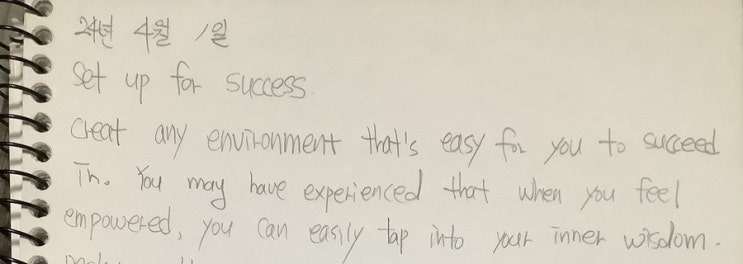 24년 4월 1일
Set up for success.
Creat any environment that's easy for you to succeed
in. You may have experienced that when you feel
empowered, you can easily tap into your inner wisdom.